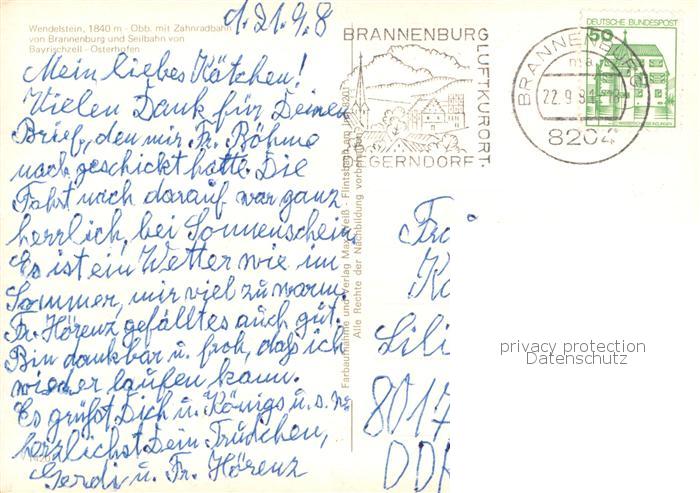 Wendelstein, 1840 m - Obb. mit Zahnradbahn
von Brannenburg und Seilbahn von
Bayrischzell - Osterhofen
d. 21.9.8
Mein liebes Kätchen!
Vielen Dank für Deinen
Brief, den mir Fr. Böhme
nachgeschickt hatte. Die
Fahrt nach darauf war ganz
herrlich, bei Sonnenschein
Es ist ein Wetter wie im
Sommer, mir viel zu warm.
Fr. Hörenz gefällt es auch gut.
Bin dankbar u. froh, daß ich
wieder laufen kann.
Es grüßt Dich u. Königs u.s.w.
herzlichst Dein Trudchen,
Gerdi u. Fr. Hörenz
Farbaufnahme und Verlag Max Weiß - Flintsbach am
Alle Rechte der Nachbildung vorbehalten
BRANNENBURG
LUFTKURORT
DEGERNDORF
BRANNENBURG
22.9.8
8204
DEUTSCHE BUNDESPOST
50
Fra
Kö
Lili
8017
DDR
privacy protection
Datenschutz